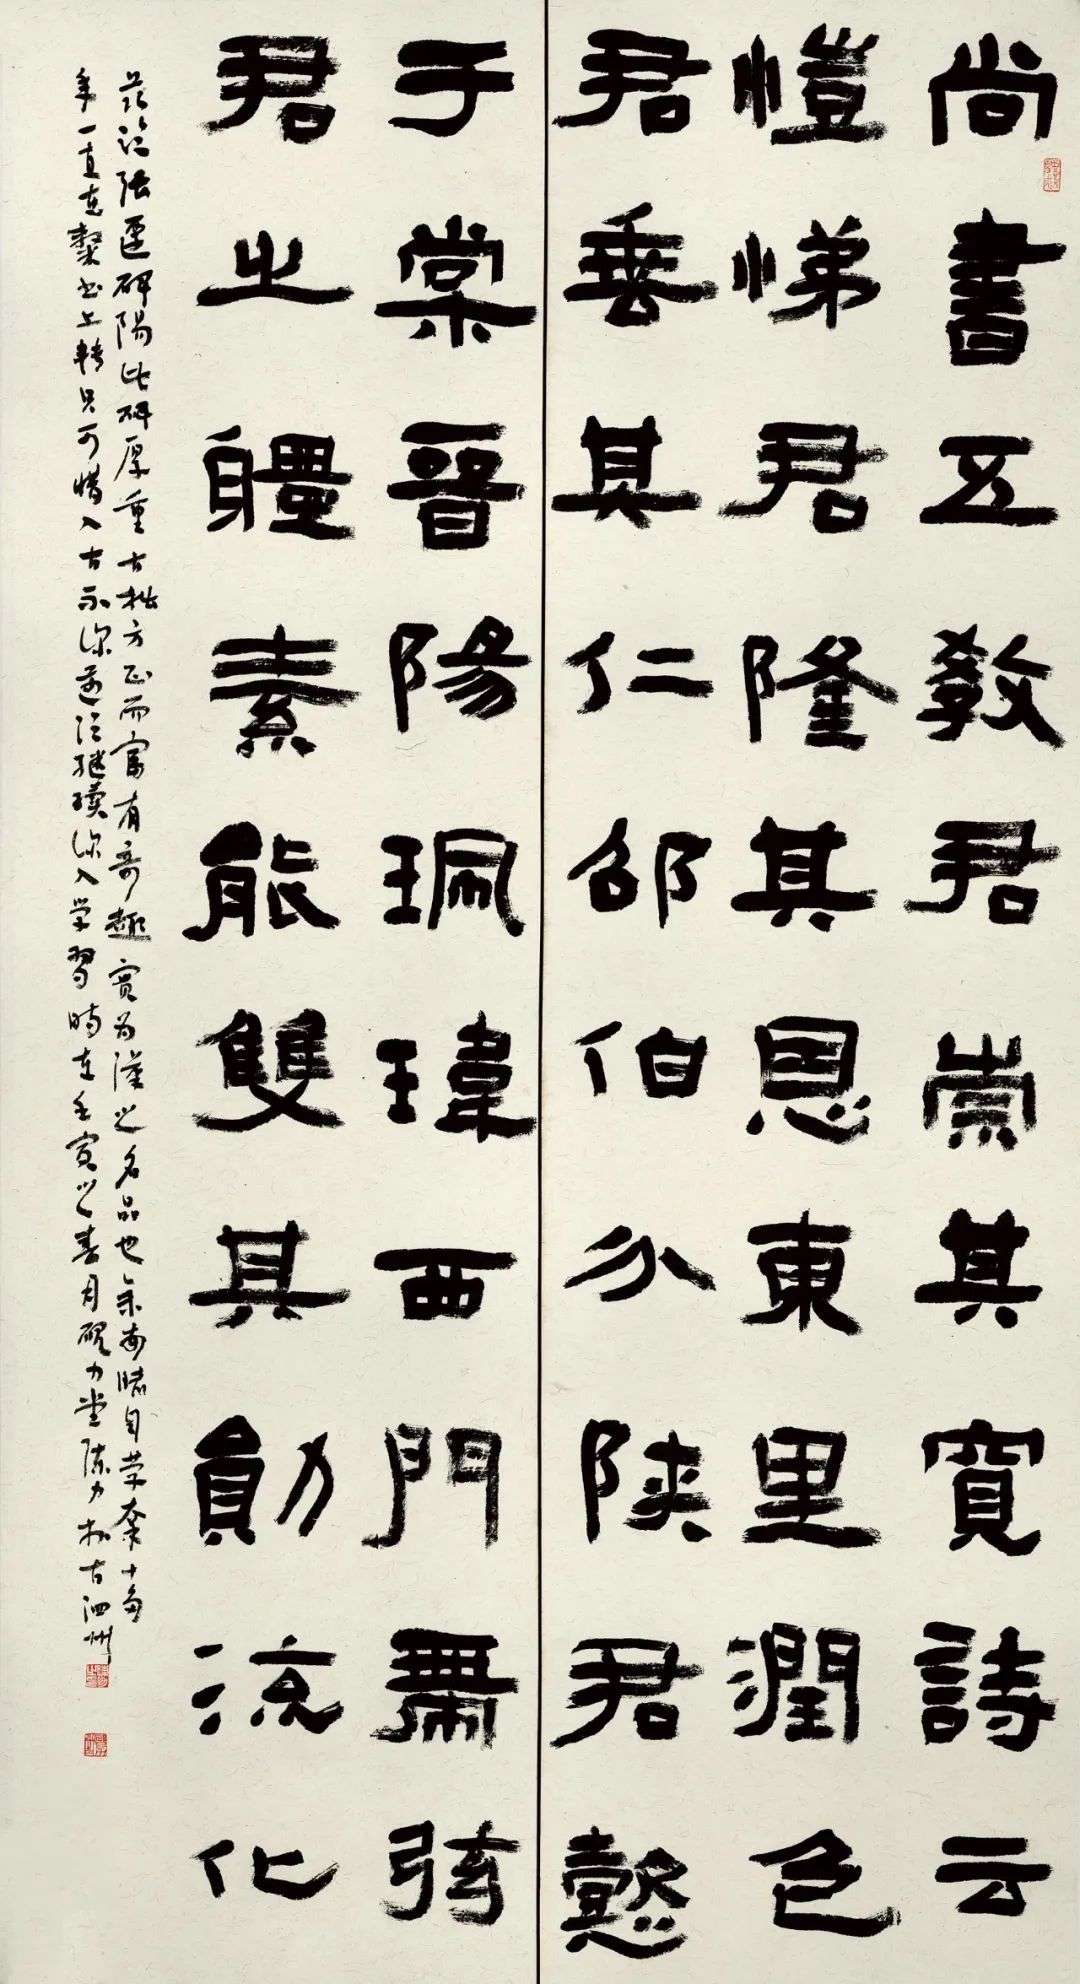 尚書五教君崇其寬詩云
愷悌君隆其恩東里潤色
君垂其仁邵伯分陝君懿
于棠晉陽珮瑋西門帶弦
君之軆素能雙其勛流化
临張遷碑陽此碑厚重古拙方正而富有奇趣實为漢之名品也余十多
年一直在隸书上轉只可惜入古不深還须继續深入学習時在壬寅之春月硯力堂陈力於古泗州